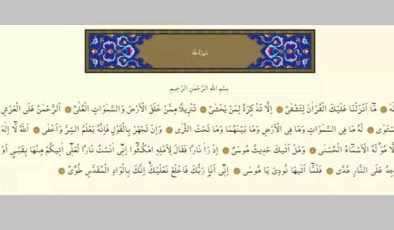 سُورَةُ طٰهٰ
بِسْمِ اللّٰهِ الرَّحْمٰنِ الرَّحِيمِ
مَٓا اَنْزَلْنَا عَلَيْكَ الْقُرْاٰنَ لِتَشْقٰىۙ اِلَّا تَذْكِرَةً لِمَنْ يَخْشٰىۙ تَنْز۪يلًا مِمَّنْ خَلَقَ الْاَرْضَ وَالسَّمٰوَاتِ الْعُلٰىۜ اَلرَّحْمٰنُ عَلَى الْعَرْشِ
اسْتَوٰى لَهُ مَا فِي السَّمٰوَاتِ وَمَا فِي الْاَرْضِ وَمَا بَيْنَهُمَا وَمَا تَحْتَ الثَّرٰى وَاِنْ تَجْهَرْ بِالْقَوْلِ فَاِنَّهُ يَعْلَمُ السِّرَّ وَاَخْفٰى اَللّٰهُ لَٓا اِلٰهَ
اِلَّا هُوَۜ لَهُ الْاَسْمَٓاءُ الْحُسْنٰى وَهَلْ اَتٰيكَ حَد۪يثُ مُوسٰىۢ اِذْ رَاٰ نَارًا فَقَالَ لِاَهْلِهِ امْكُثُٓوا اِنّ۪ٓي اٰنَسْتُ نَارًا لَعَلّ۪ٓي اٰت۪يكُمْ مِنْهَا بِقَبَسٍ اَوْ
عَلَى النَّارِ هُدًى فَلَمَّٓا اَتٰيهَا نُودِيَ يَا مُوسٰىۜ اِنّ۪ٓي اَنَا۬ رَبُّكَ فَاخْلَعْ نَعْلَيْكَۚ اِنَّكَ بِالْوَادِ الْمُقَدَّسِ طُوًىۜ